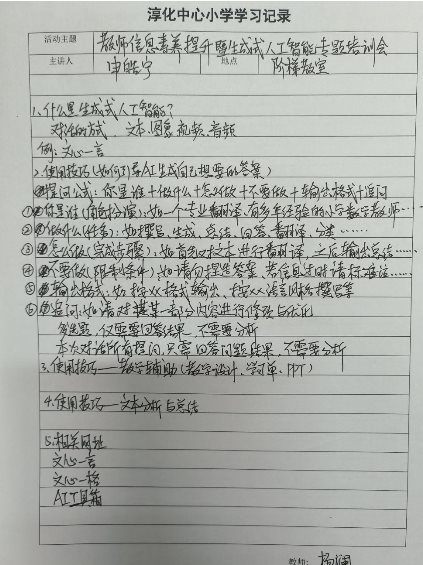 淳化中心小学学习记录
活动主题 教师信息素养提升暨生成式人工智能专题培训会
主讲人 申皓宇 地点 阶梯教室
1.什么是生成式人工智能?
对话的方式、文本、图象、视频、音频
例:文心一言
2.使用技巧(如何引导AI生成自己想要的答案)
提问公式:你是谁+做什么+怎么做+不要做+输出格式+追问
①你是谁(角色扮演):如一个专业翻译,有多年经验的小学数学教师……
②做什么(任务):如撰写、生成、总结、回答、翻译、分类……
③怎么做(完成步骤):如首先对文本进行翻译,之后输出总结……
④不要做(限制条件):如请勿捏造答案,若信息过时请标注……
⑤输出格式:如按××格式输出、按××语言风格撰写等
⑥追问:如请对搜某一部分内容进行修改与优化
仅需要回答结果,不需要分析
本次对话所有提问,只需回答问题结果,不需要分析
3.使用技巧——教学辅助(教学设计、学习单、PPT)
4.使用技巧——文本分析与总结
5.相关网址
文心一言
文心一格
AI工具箱
教师: 杨